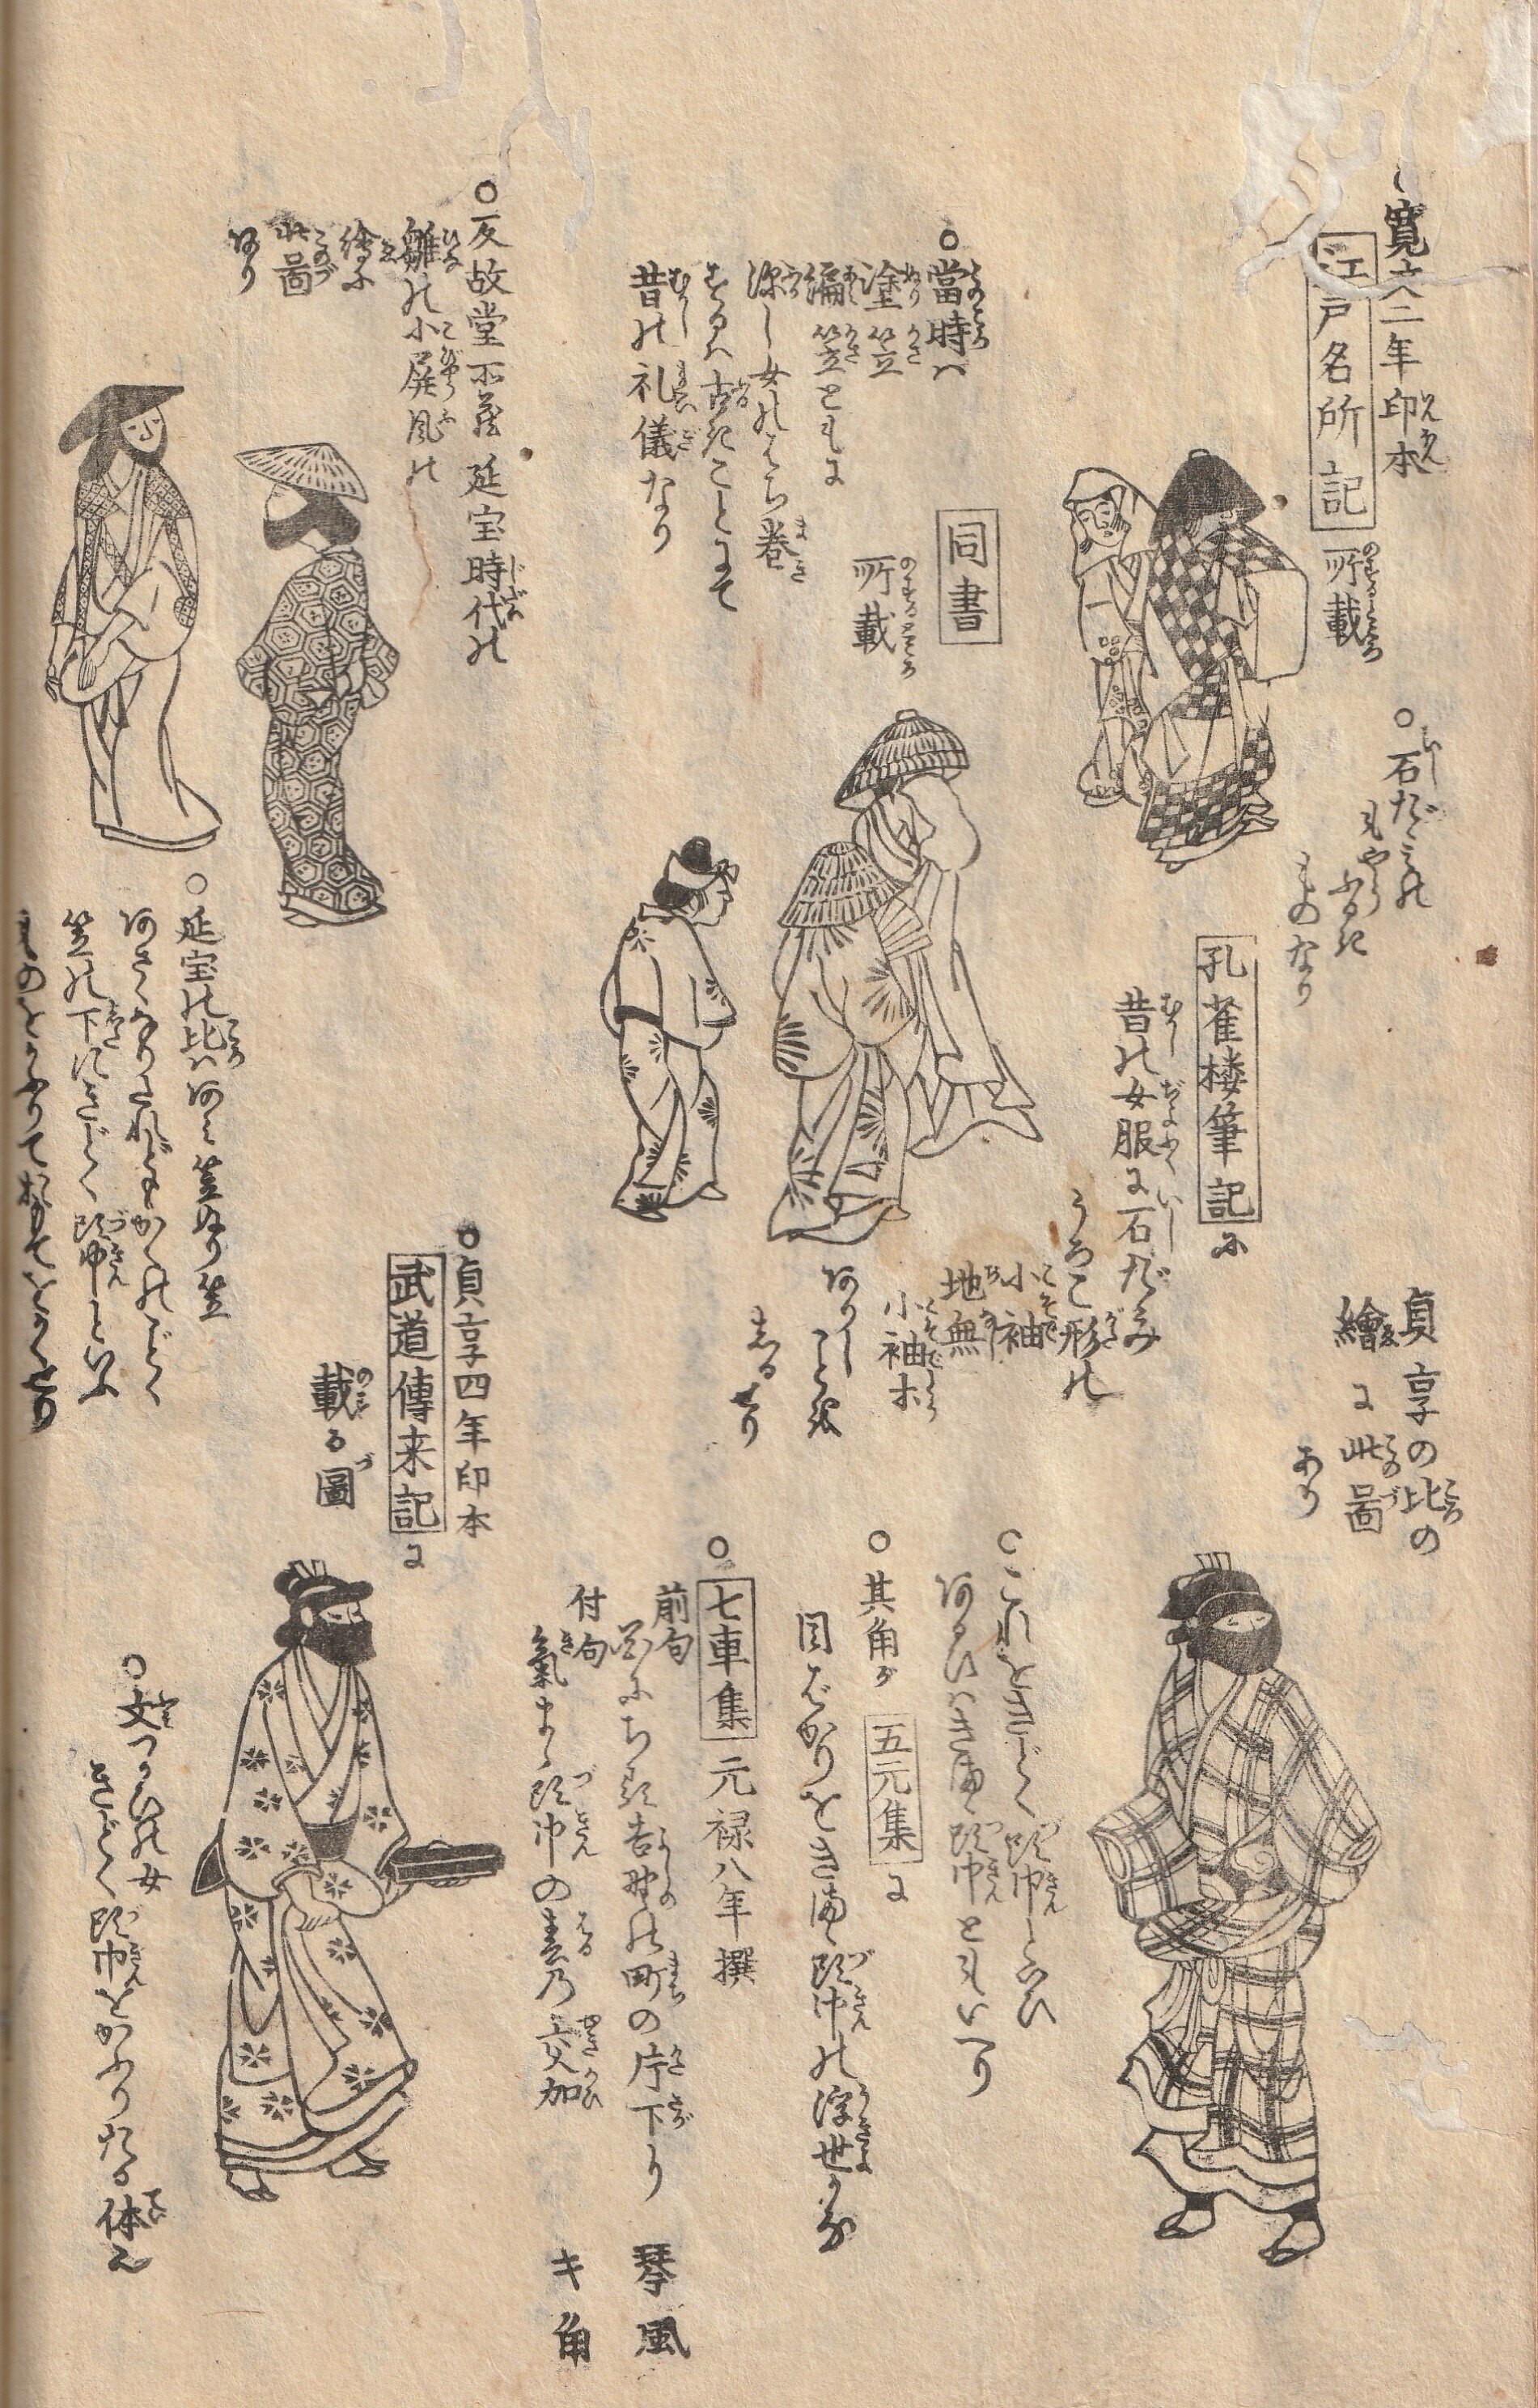 ○寛文二年印本
江戸名所記
所載
○石だゝみの
もやうふるき
ものなり
孔雀楼筆記に
昔の女服に石だゝみ
うろこ形の
小袖
地無
小袖
ありしことを
しるせり
同書
所載
○當時は
塗笠
編笠ともに
深し女のはち巻
するは古きことにて
昔の礼儀なり
○反故堂所蔵延宝時代の
雛の小屏風の
繪に
此圖
あり
○延宝の比はあみ笠ぬり笠
あさくなりたれどもかくのごとく
笠の下にきどく頭巾といふ
ものをかふりておもてをかくせり
貞享の比の
繪に此圖
あり
○これをきどく頭巾といひ
あるひはきまゝ頭巾ともいへり
○其角が五元集に
目ばかりをきまゝ頭巾の浮世かな
○七車集元禄八年撰
前句
吉野の町の片下り
琴風
付句
氣まゝ頭巾の春乃交加
キ角
○貞享四年印本
武道傳来記に
載る圖
○文つかひの女
きどく頭巾をかふりたる体也